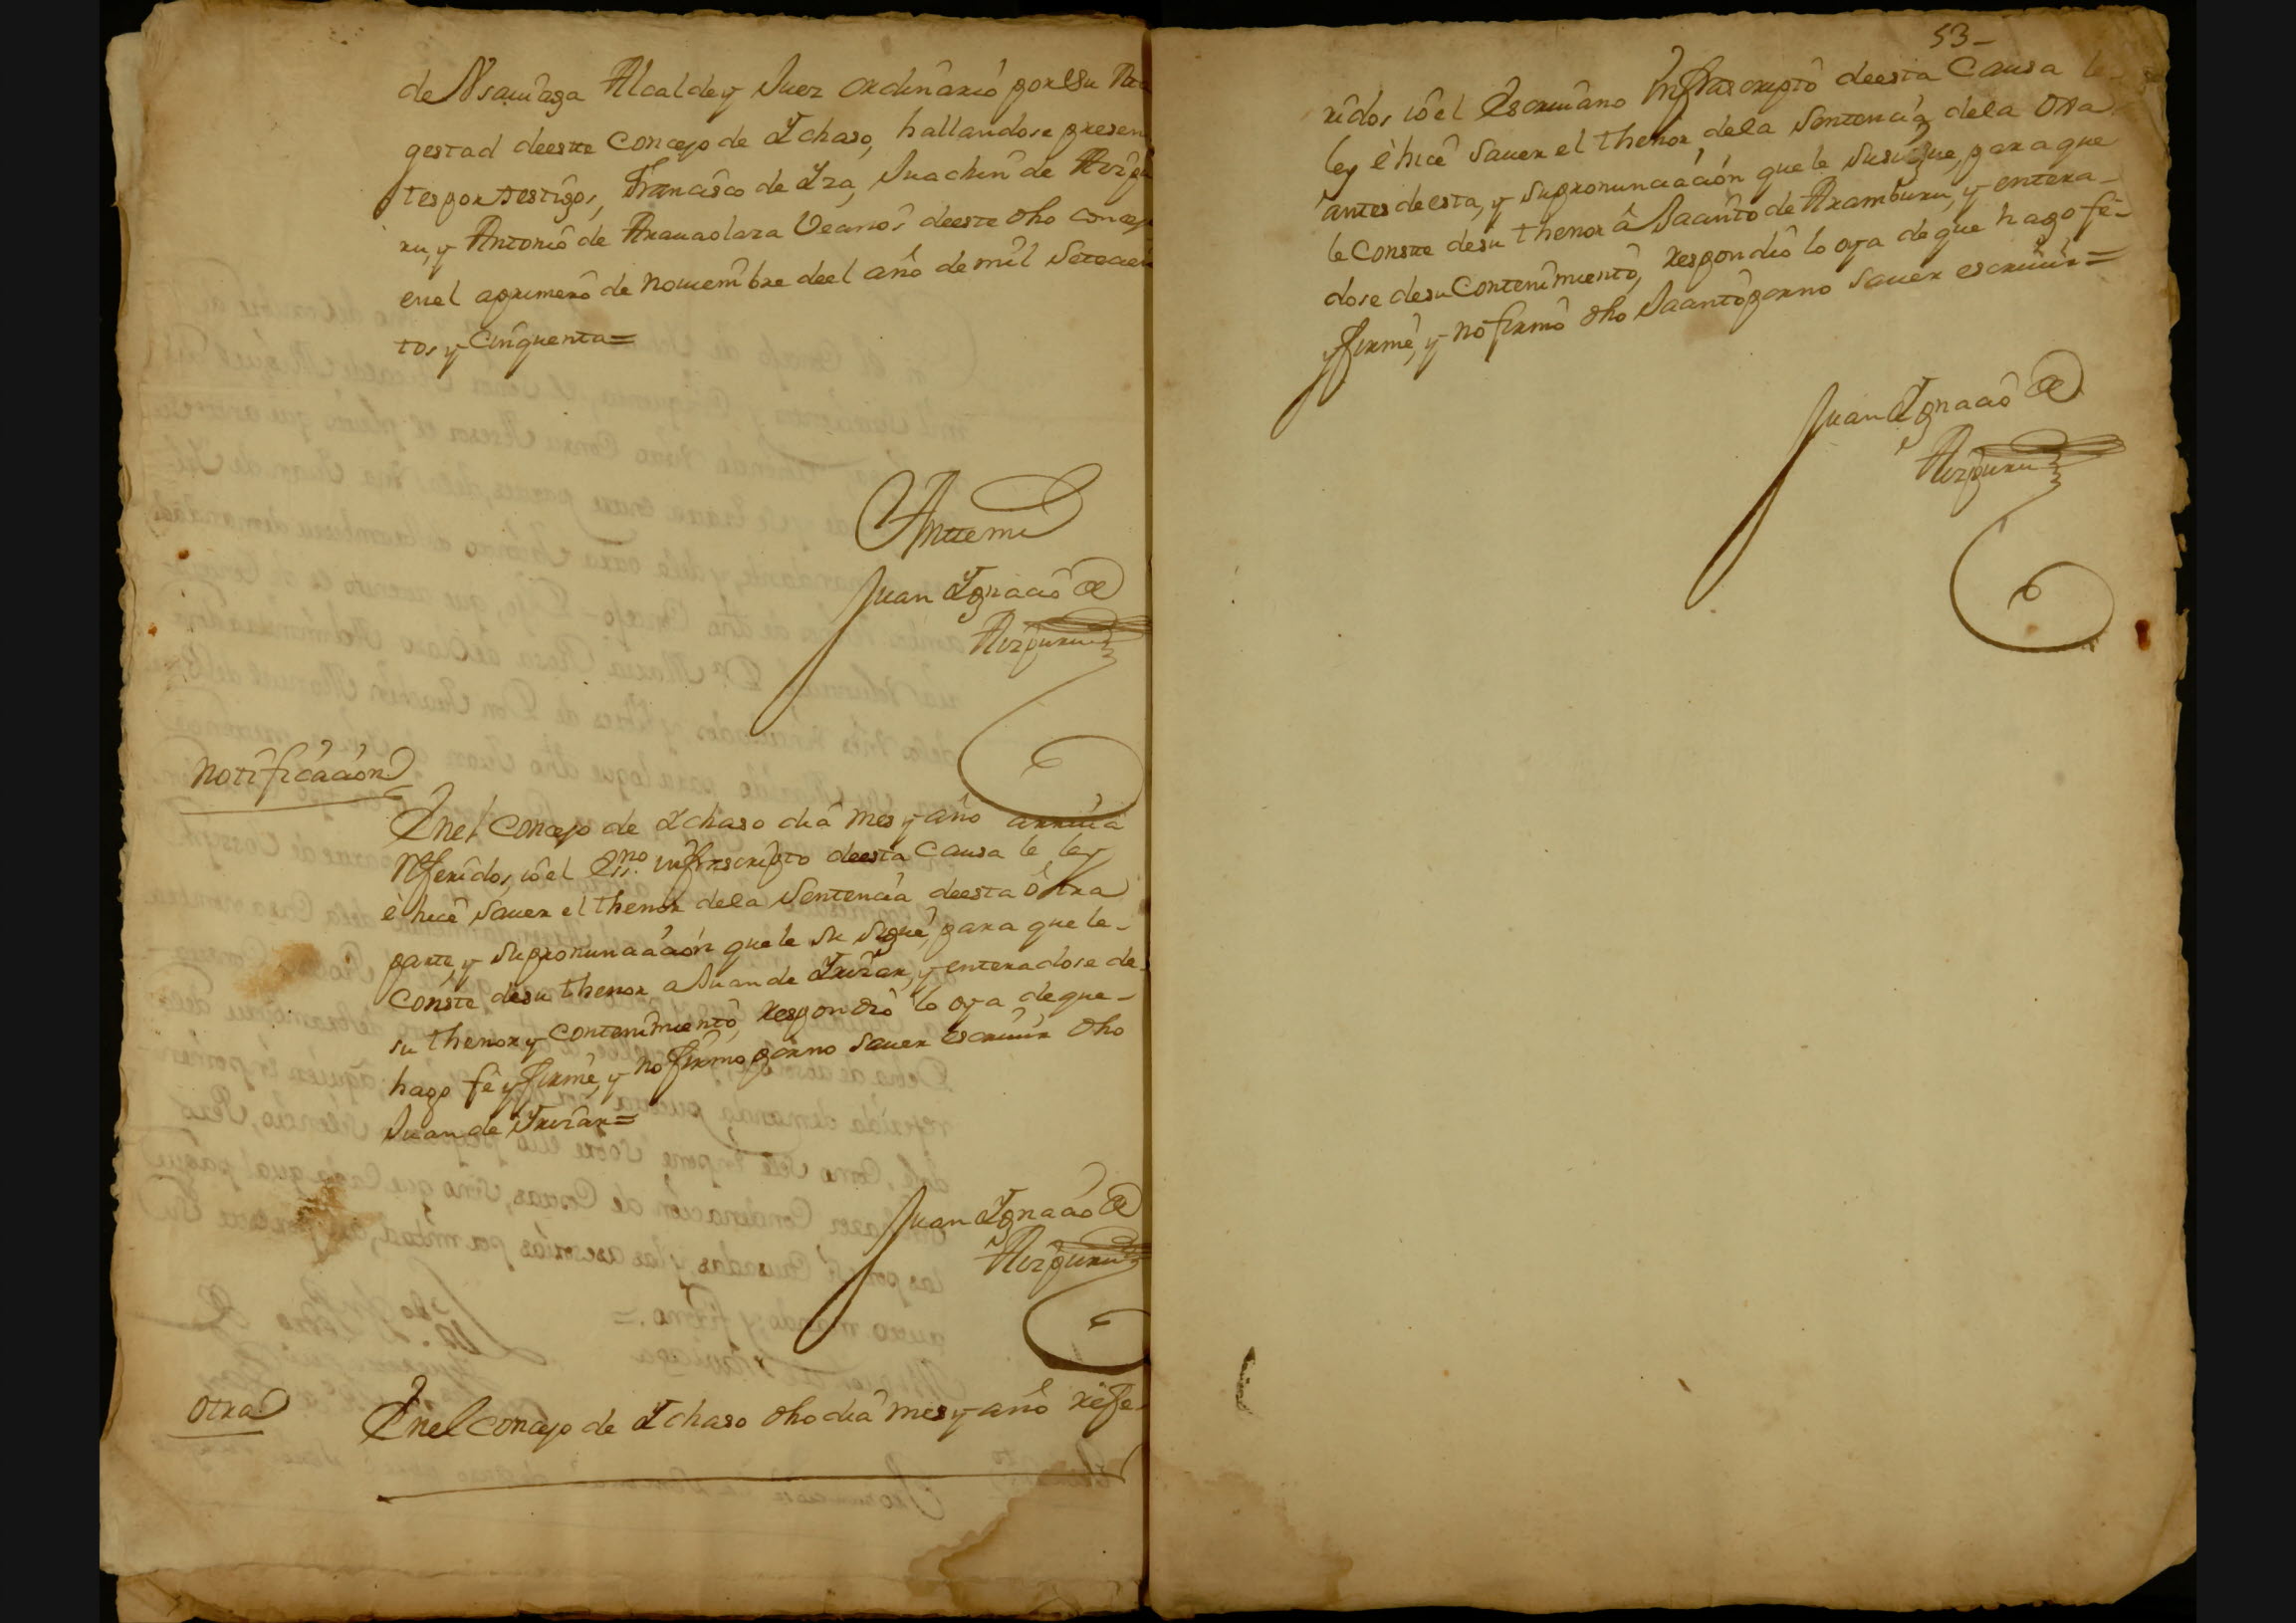 de Nsauiaga Alcalde y Juez ordinario por su Ma
gestad deeste Concejo de Ychaso, hallandose presen
tes por testigos, Francisco de Yza, Juachin de Aizpu
ru, y Antonio de Arauaolaza Vecinos deeste dho concejo
en el a primero de nouiembre deel año de mil Setecien
tos y Cinquenta =
Antemi
Juan Ygnacio de
Aizpuru
Notificacion
Enel Concejo de Ychaso dia mes y año arriua
Referidos, io el Ess.no infrascripto deesta Causa le ley
è hice Sauer el thenor dela Sentencia deesta otra
parte, y Supronunciacion que le su sigue, para que le
Conste desu thenor a Juan de Yrizar, y enteradose de
su thenor y contenimiento, Respondio lo oya de que
hago fe y firmé, y no firmo por no Sauer escriuir dho
Juan de Yrizar =
Juan Ygnacio de
Aizpuru
Otra
Enel concejo de Ychaso dho dia mes y año refe
53-
ridos io el Escriuano Infrascripto deesta Causa le
ley è hice Sauer el thenor dela Sentencia dela otra
antes deesta, y Supronunciacion que le Susigue, para que
le Conste desu thenor â Saanto de Aramburu, y entera
dose desu Contenimiento, respondio lo oya de que hago fe
y firme, y no firmò dho Saanto por no Sauer escriuir =
Juan Ygnacio de
Aizpuru